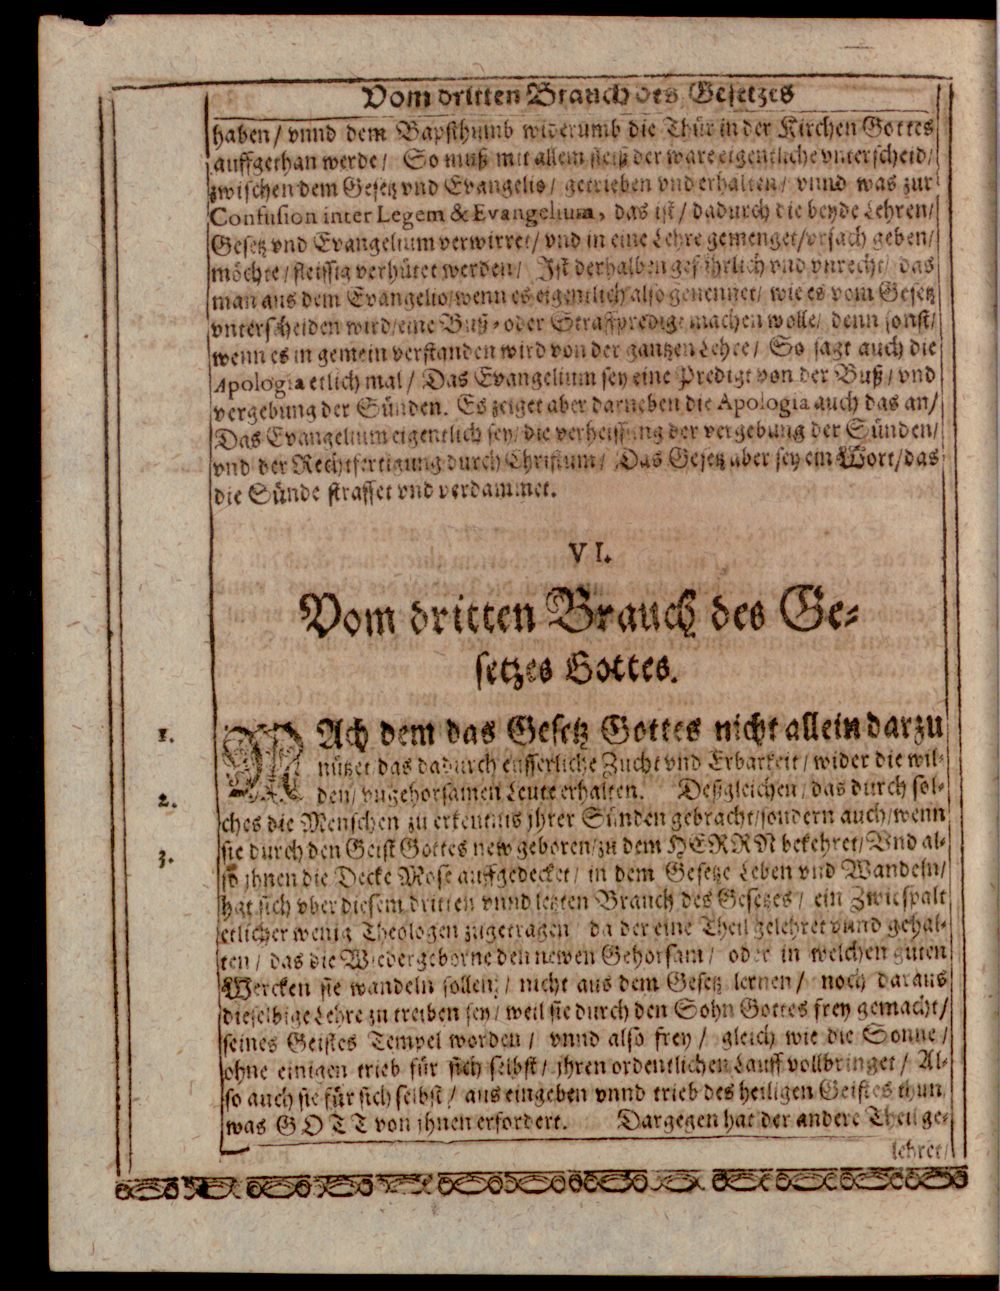 Vom dritten Brauch des Gesetzes
haben / vnnd dem Bapsthumb widerumb die Thür in der Kirchen Gottes
auffgethan werde / So muß mit allem fleiß der ware eigentliche vnterscheid /
zwischen dem Gesetz vnd Evangelio / getrieben vnd erhalten / vnnd was zur
Confusion inter Legem & Evangelium, das ist / dadurch die beyde Lehren /
Gesetz vnd Evangelium verwirret / vnd in eine Lehre gemenget / vrsach geben /
möchte / fleissig verhütet werden / Ist derhalben gefährlich vnd vnrecht / das
man aus dem Evangelio / wenn es eigentlich also genennet / wie es vom Gesetz
vnterscheiden wird / eine Buß- oder Straffpredigt machen wolle / denn sonst /
wenn es in gemein verstanden wird von der gantzen Lehre / So sagt auch die
Apologia etlich mal / Das Evangelium sey eine Predigt von der Buß / vnd
vergebung der Sünden. Es zeiget aber darneben die Apologia auch das an /
Das Evangelium eigentlich sey / die verheissung der vergebung der Sünden /
vnd der Rechtfertigung durch Christum / Das Gesetz aber sey ein Wort / das
die Sünde straffet vnd verdammet.
VI.
Vom dritten Brauch des Ge-
setzes Gottes.
1. NAch dem das Gesetz Gottes nicht allein darzu
nützet das dadurch eusserliche Zucht vnd Erbarkeit / wider die wil-
2. den / vngehorsamen Leute erhalten. Deßgleichen / das durch sol-
ches die Menschen zu erkentnis jhrer Sünden gebracht / sondern auch / wenn
3. sie durch den Geist Gottes new geboren / zu dem HERRN bekehret / Vnd al-
so jhnen die Decke Mose auffgedecket / in dem Gesetze Leben vnd Wandeln /
hat sich vber diesem dritten vnnd letzten Brauch des Gesetzes / ein Zwiespalt
etlicher wenig Theologen zugetragen / da der eine Theil gelehret vnnd gehal-
ten / das die Wiedergeborne den newen Gehorsam / oder in welchen guten
Wercken sie wandeln sollen / nicht aus dem Gesetz lernen / noch daraus
dieselbige Lehre zu treiben sey / weil sie durch den Sohn Gottes frey gemacht /
seines Geistes Tempel worden / vnnd also frey / gleich wie die Sonne /
ohne einigen trieb für sich selbst / jhren ordentlichen Lauff vollbringet / Al-
so auch sie für sich selbst / aus eingeben vnnd trieb des heiligen Geistes thun
was GOTT von jhnen erfordert. Dargegen hat der andere Theil ge-
lehret /